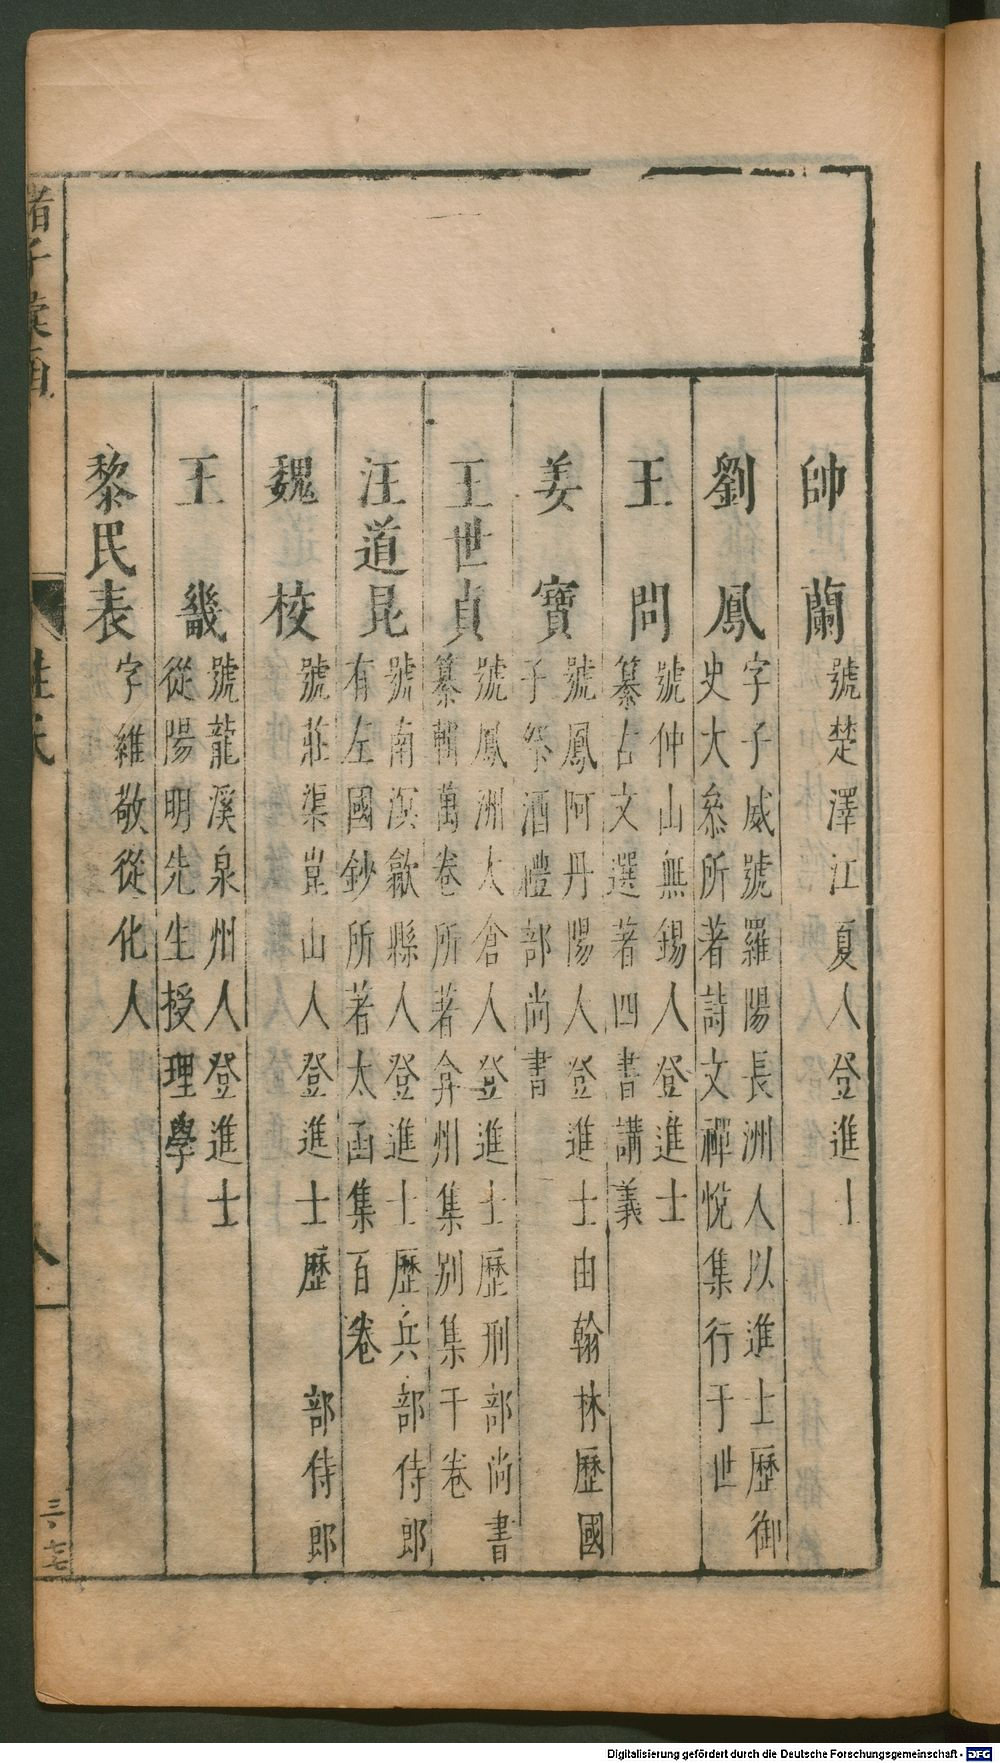 帥蘭 號楚澤江夏人登進士
劉鳳 字子威號羅陽長洲人以進士歷御
史大叅所著詩文禪悅集行于世
王問 號仲山無錫人登進士
纂古文選著四書講義
姜寶 號鳳阿丹陽人登進士由翰林歷國
子祭酒禮部尚書
王世貞 號鳳洲太倉人登進士歷刑部尚書
纂輯萬卷所著弇州集別集千卷
汪道昆 號南溟歙縣人登進士歷兵部侍郎
有左國鈔所著太函集百卷
魏校 號莊渠崑山人登進士歷 部侍郎
王畿 號龍溪泉州人登進士
從陽明先生授理學
黎民表 字維敬從化人
諸子彙函 姓氏 八
三、七七
Digitalisierung gefördert durch die Deutsche Forschungsgemeinschaft - DFG